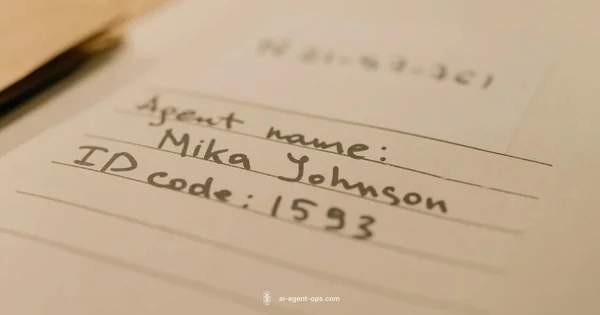 Agent name:
Mika Johnson
ID code: 1593
ai-agent-ops.com